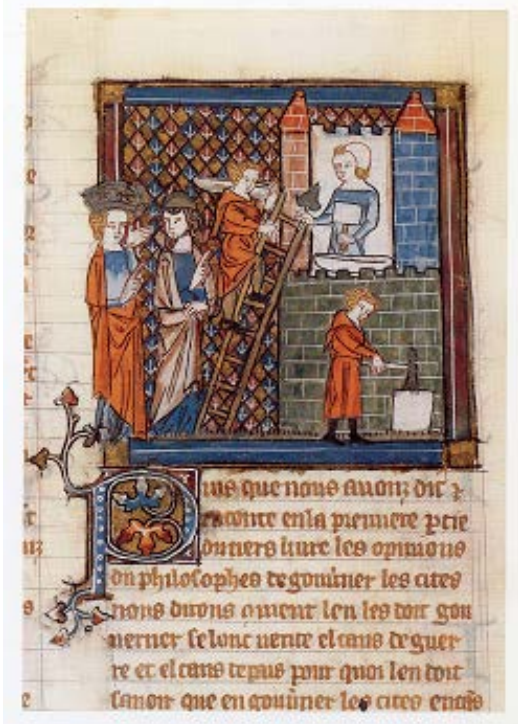 Puis que nous auonz dit ⁊
raconte en la premiere ptie
ou tiers liure les opinions
philosophes de gouuner les cites
nous dirons coment len les doit gou
uerner selonc uerite el tans de guer
re et el tans de pais pour quoi len doit
sauoir que en gouuner les cites